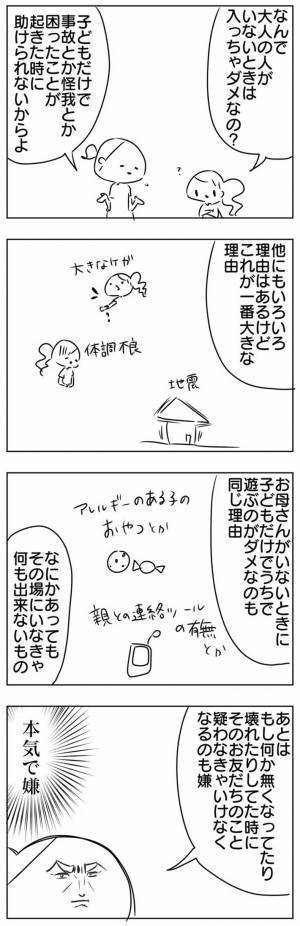 なんで
大人の人が
いないときは
入っちゃダメなの？
子どもだけで
事故とか怪我とか
困ったことが
起きた時に
助けられないからよ
他にもいろいろ
理由はあるけど
これが一番大きな
理由
大きなケガ
体調不良
地震
お母さんがいないときに
子どもだけでうちで
遊ぶのがダメなのも
同じ理由
アレルギーのある子の
おやつとか
親との連絡ツール
の有無
とか
なにかあっても
その場にいなきゃ
何も出来ないもの
あとは
もし何か無くなってたり
壊れたりしてた時に
そのお友だちのこと
疑わなきゃいけなく
なるのも嫌
本気で嫌